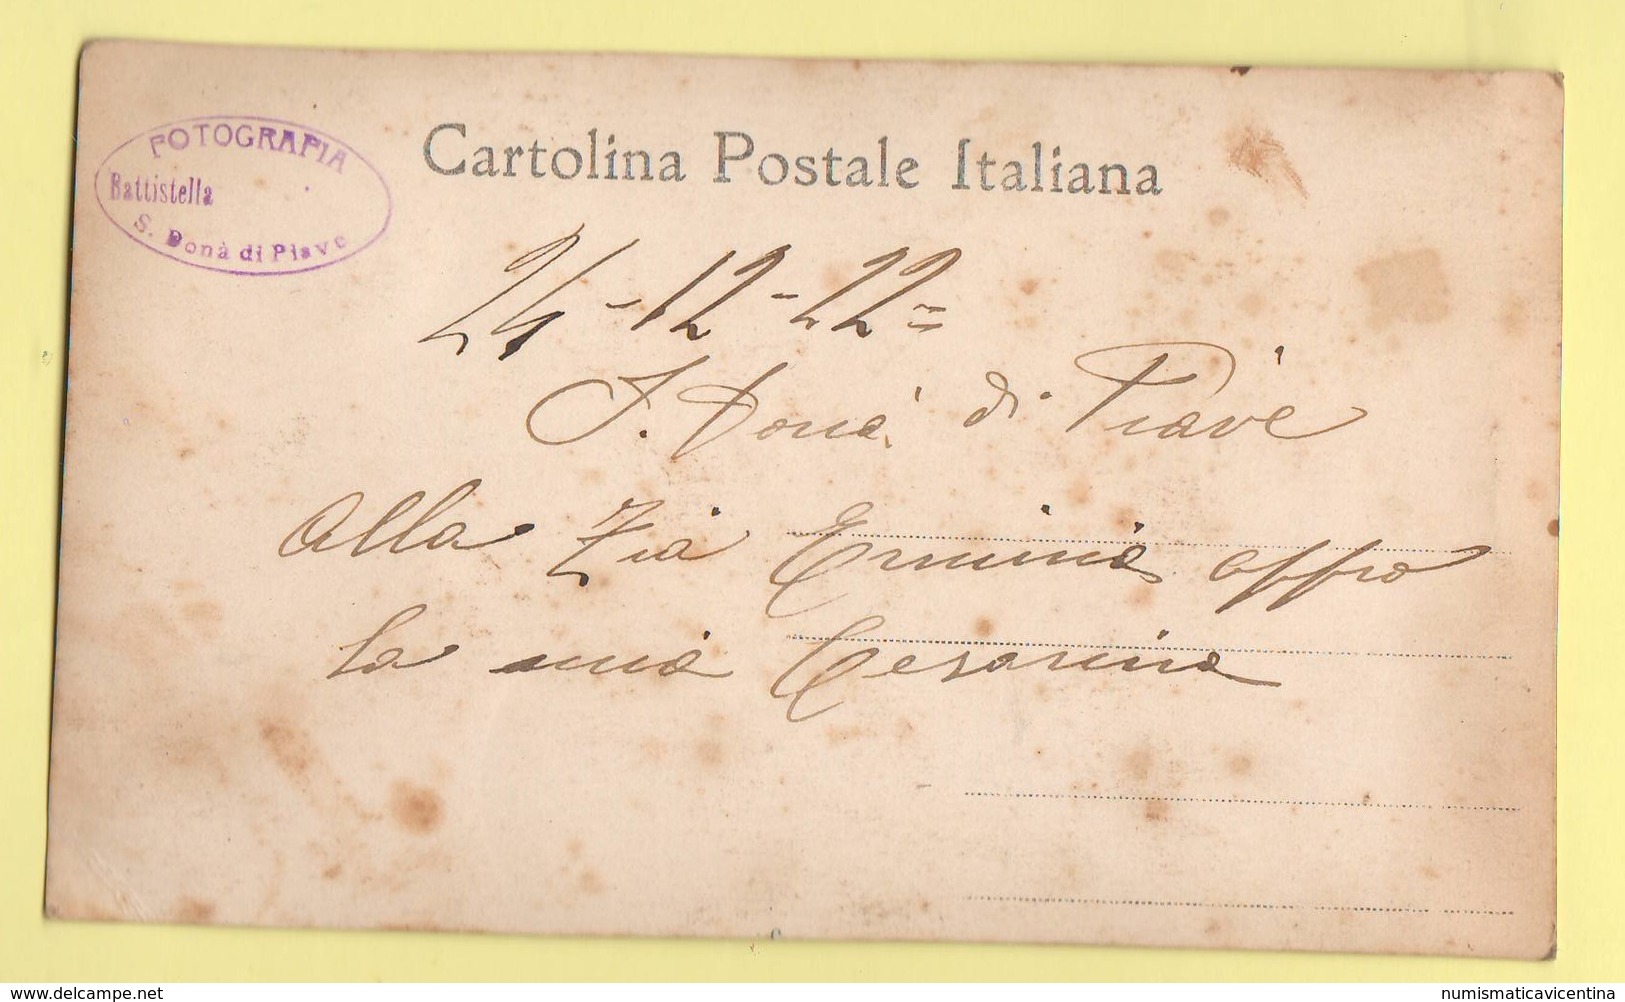 FOTOGRAFIA
Battistella
S. Donà di Piave
Cartolina Postale Italiana
24-12-22=
S. Donà di Piave
Alla Zia Erminia offro
la mia Cesarina
www.delcampe.net
numismaticavicentina